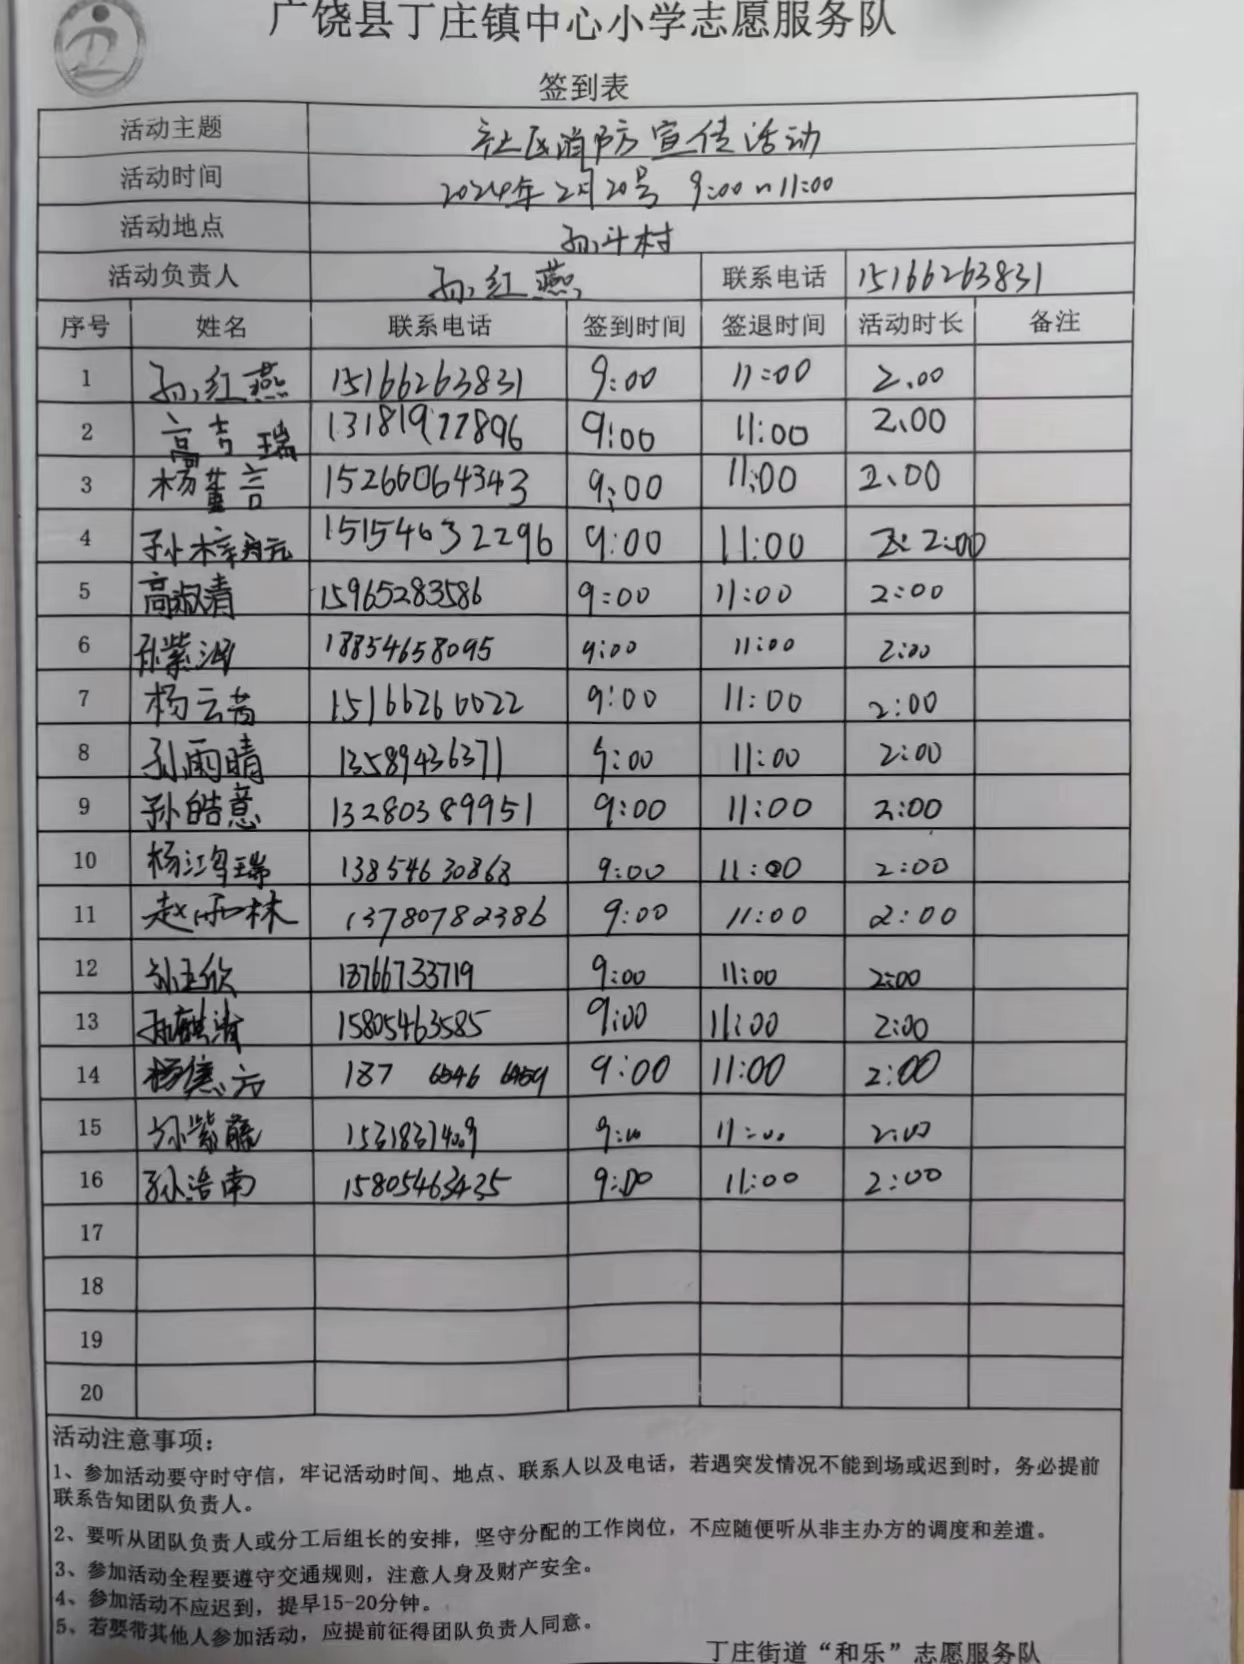 广饶县丁庄镇中心小学志愿服务队
签到表
活动主题 社区消防宣传活动
活动时间 2024年2月20号 9:00~11:00
活动地点 孙斗村
活动负责人 孙红燕 联系电话 15166263831
序号 姓名 联系电话 签到时间 签退时间 活动时长 备注
1 孙红燕 15166263831 9:00 11:00 2.00
2 高吉瑞 13181977896 9:00 11:00 2.00
3 杨董言 15266064343 9:00 11:00 2.00
4 孙梓 15154632296 9:00 11:00 2:00
5 高淑清 15965283586 9:00 11:00 2:00
6 孙紫涵 18854658095 9:00 11:00 2:00
7 杨云茜 15166260022 9:00 11:00 2:00
8 孙雨晴 13589436371 9:00 11:00 2:00
9 孙皓意 13280389951 9:00 11:00 2:00
10 杨鸿瑞 13854630868 9:00 11:00 2:00
11 赵雨林 13780782386 9:00 11:00 2:00
12 孙玉欣 18766733719 9:00 11:00 2:00
13 孙麒 15805463585 9:00 11:00 2:00
14 杨 187 6546 6459 9:00 11:00 2:00
15 孙紫藤 15318371409 9:00 11:00 2:00
16 孙浩南 15805463435 9:00 11:00 2:00
17
18
19
20
活动注意事项：
1、参加活动要守时守信，牢记活动时间、地点、联系人以及电话，若遇突发情况不能到场或迟到时，务必提前
联系告知团队负责人。
2、要听从团队负责人或分工后组长的安排，坚守分配的工作岗位，不应随便听从非主办方的调度和差遣。
3、参加活动全程要遵守交通规则，注意人身及财产安全。
4、参加活动不应迟到，提早15-20分钟。
5、若要带其他人参加活动，应提前征得团队负责人同意。
丁庄街道“和乐”志愿服务队